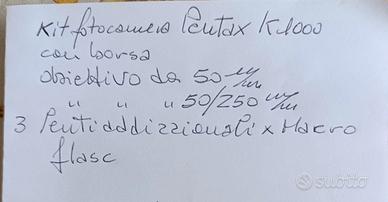 Kit fotocamera Pentax K1000
con borsa
obiettivo da 50 m/m
" " " 50/250 m/m
3 Lenti addizzionali x Macro
flasc
subito